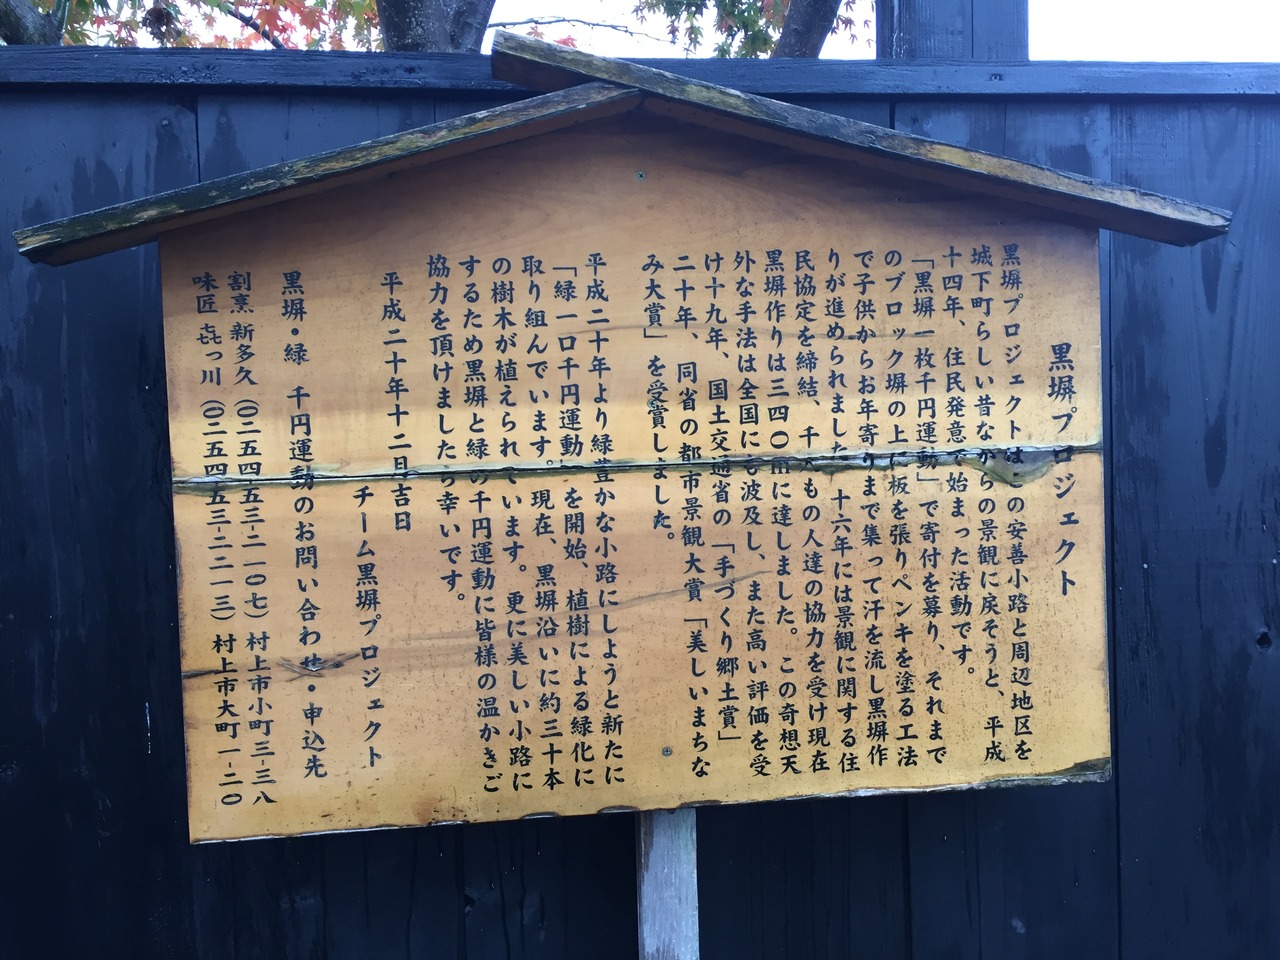 黒塀プロジェクト
黒塀プロジェクトは の安善小路と周辺地区を
城下町らしい昔ながらの景観に戻そうと、平成
十四年、住民発意で始まった活動です。
「黒塀一枚千円運動」で寄付を募り、それまで
のブロック塀の上に板を張りペンキを塗る工法
で子供からお年寄りまで集って汗を流し黒塀作
りが進められました 十六年には景観に関する住
民協定を締結、千 もの人達の協力を受け現在
黒塀作りは三四〇mに達しました。この奇想天
外な手法は全国にも波及し、また高い評価を受
け十九年、国土交通省の「手づくり郷土賞」
二十年、同省の都市景観大賞「美しいまちな
み大賞」を受賞しました。
平成二十年より緑豊かな小路にしようと新たに
「緑一口千円運動」を開始、植樹による緑化に
取り組んでいます。現在、黒塀沿いに約三十本
の樹木が植えられています。更に美しい小路に
するため黒塀と緑の千円運動に皆様の温かきご
協力を頂けましたら幸いです。
平成二十年十二月吉日
チーム黒塀プロジェクト
黒塀・緑 千円運動のお問い合わせ・申込先
割烹 新多久(〇二五四-五三-二一〇七)村上市小町三-三八
味匠 㐂っ川(〇二五四-五三-二二一三)村上市大町一-二〇